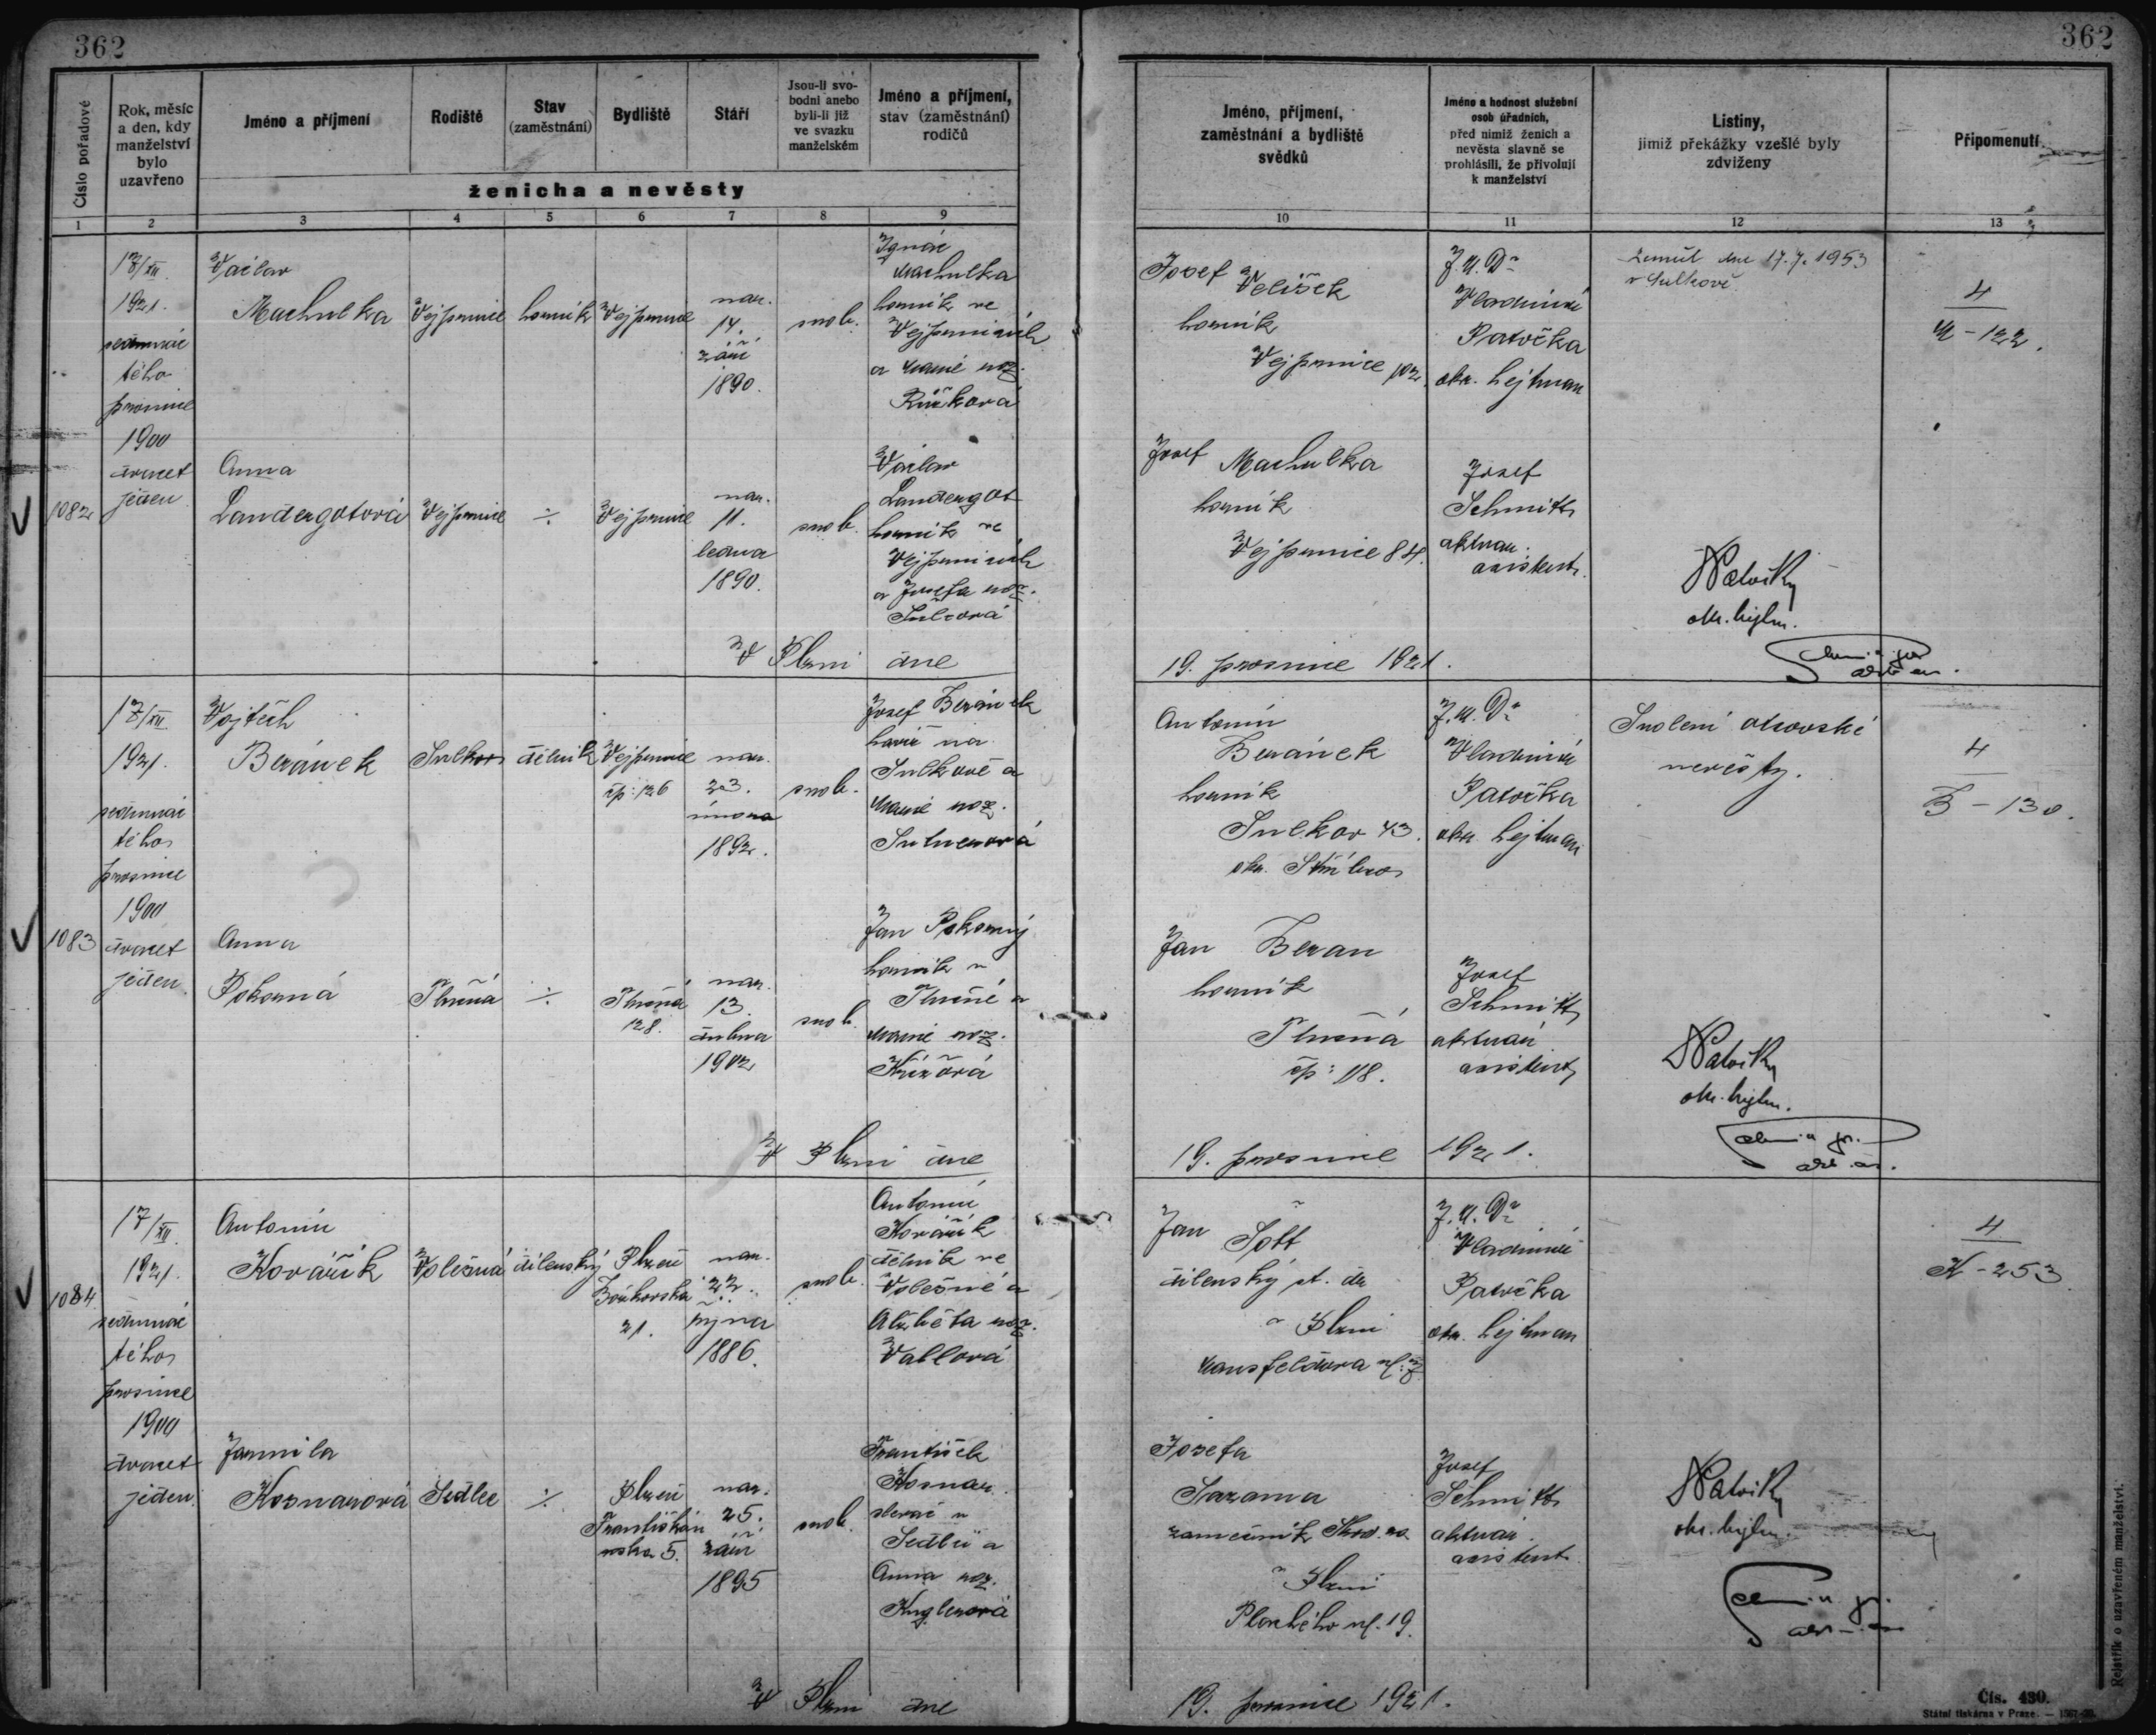 362
362
Číslo pořadové
Rok, měsíc
a den, kdy
manželství
bylo
uzavřeno
Jméno a příjmení
Rodiště
Stav
(zaměstnání)
Bydliště
Stáří
Jsou-li svo-
bodni anebo
byli-li již
ve svazku
manželském
Jméno a příjmení,
stav (zaměstnání)
rodičů
ženicha a nevěsty
Jméno, příjmení,
zaměstnání a bydliště
svědků
Jméno a hodnost služební
osob úřadních,
před nimiž ženich a
nevěsta slavně se
prohlásili, že přivolují
k manželství
Listiny,
jimiž překážky vzešlé byly
zdviženy
Připomenutí
1 2 3 4 5 6 7 8 9 10 11 12 13
1082
17/XII
1921.
sedmnác
tého
prosince
1900
dvacet
jeden
Václav
Machulka
Vejprnice
horník
Vejprnice
nar.
14.
září
1890.
svob.
Ignác
Machulka
horník ve
Vejprnicích
a Marie roz.
Růžková
Josef Velíšek
horník
Vejprnice 102.
J.U.Dr
Vladimír
Patočka
okr. hejtman
zemřel dne 17.7.1953
v Sulkově
4
M - 122.
Anna
Landergotová
Vejprnice
÷
Vejprnice
nar.
11.
ledna
1890.
svob.
Václav
Landergot
horník ve
Vejprnicích
a Josefa roz.
Josef Machulka
horník
Vejprnice 84.
Josef
Schmitt
aktuar.
asistent.
Patočka
okr. hejtm.
V Plzni dne
19. prosince 1921.
1083
17/XII
1921.
sedmnác
tého
prosince
1900
dvacet
jeden.
Vojtěch
Beránek
Sulkov
dělník
Vejprnice
čp: 126
nar.
23.
února
1892.
svob.
Josef Beránek
havíř na
Sulkově a
Marie roz.
Antonín
Beránek
horník
Sulkov 43.
okr. Stříbro
J.U.Dr
Vladimír
Patočka
okr. hejtman
Svolení otcovské
nevěsty.
4
B - 130.
Anna
Pokorná
Tlučná
÷
Tlučná
128.
nar.
13.
dubna
1902
svob.
Jan Pokorný
horník v
Tlučné a
Marie roz.
Křížová
Jan Beran
horník
Tlučná
čp: 118.
Josef
Schmitt
aktuár
asistent
Patočka
okr. hejtm.
V Plzni dne
19. prosince 1921.
1084
17/XII
1921.
sedmnác
tého
prosince
1900
dvacet
jeden.
Antonín
Kovářík
Volešná
dílenský
Plzeň
21.
nar.
22.
října
1886.
svob.
Antonín
Kovářík
dělník ve
Volešné a
Alžběta roz.
Jan Šott
dílenský st. dr
v Plzni
Mansfeldova ul: 7
J.U.Dr
Vladimír
Patočka
okr. hejtman
4
K - 253
Jarmila
Kosnarová
Sedlec
÷
Plzeň
Františkán
ská 5.
nar.
25.
září
1895
svob.
František
Kosnar
slevač v
Sedlci a
Anna roz.
Kuglerová
Josefa
Sazama
zámečník Škod. zá.
v Plzni
Plachého ul. 19.
Josef
Schmitt
aktuár.
asistent.
Patočka
okr. hejtm.
V Plzni dne
19. prosince 1921.
Čís. 430.
Státní tiskárna v Praze.
Rejstřík o uzavřeném manželství.